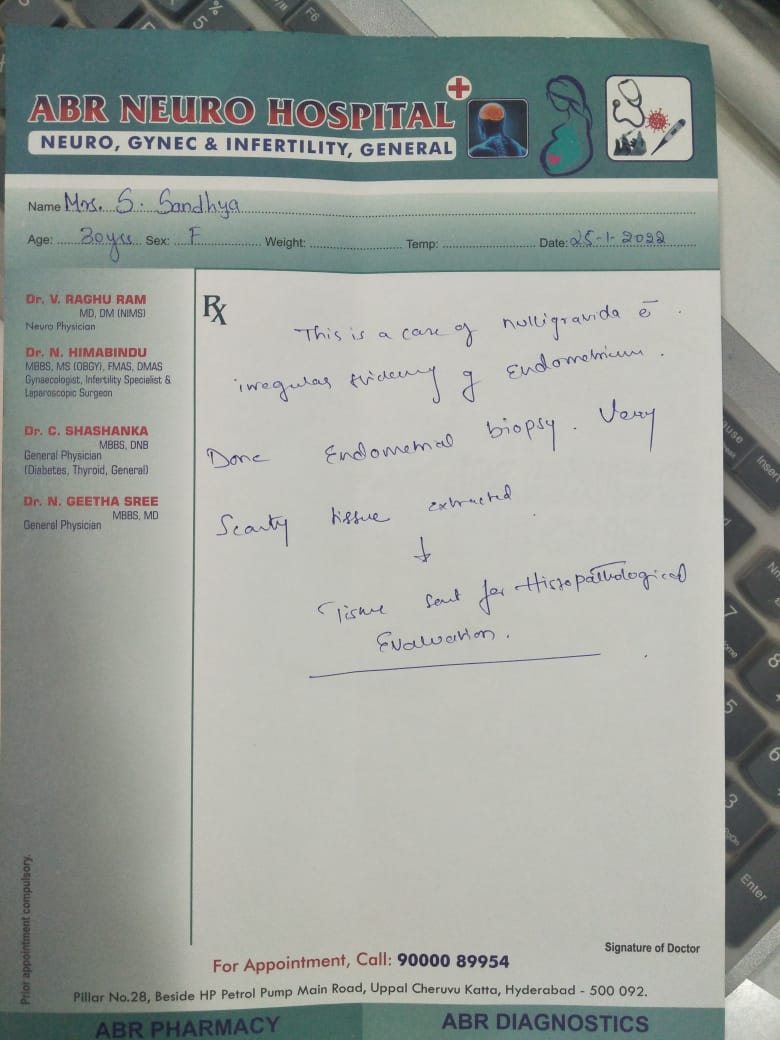 ABR NEURO HOSPITAL
NEURO, GYNEC & INFERTILITY, GENERAL
Name Mrs. S. Sandhya
Age: 30yrs Sex: F Weight: Temp: Date: 25-1-2022
Dr. V. RAGHU RAM
MD, DM (NIMS)
Neuro Physician
Dr. N. HIMABINDU
MBBS, MS (OBGY), FMAS, DMAS
Gynaecologist, Infertility Specialist &
Laparoscopic Surgeon
Dr. C. SHASHANKA
MBBS, DNB
General Physician
(Diabetes, Thyroid, General)
Dr. N. GEETHA SREE
MBBS, MD
General Physician
Rx
This is a case of nulligravida c̄
irregular of Endometrium.
Done Endometrial biopsy. Very
Scanty tissue extracted
↓
Tissue sent for Histopathological
Evaluation.
Prior appointment compulsory.
Signature of Doctor
For Appointment, Call: 90000 89954
Pillar No.28, Beside HP Petrol Pump Main Road, Uppal Cheruvu Katta, Hyderabad - 500 092.
ABR PHARMACY ABR DIAGNOSTICS